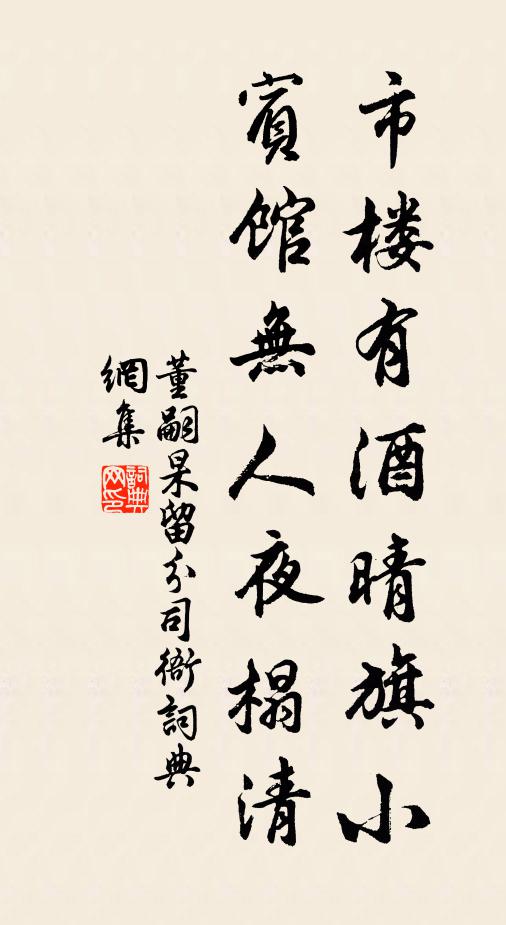 市楼有酒晴旗小
賓館無人夜榻清
董嗣杲留分司衙詞典
網集
詞典網印